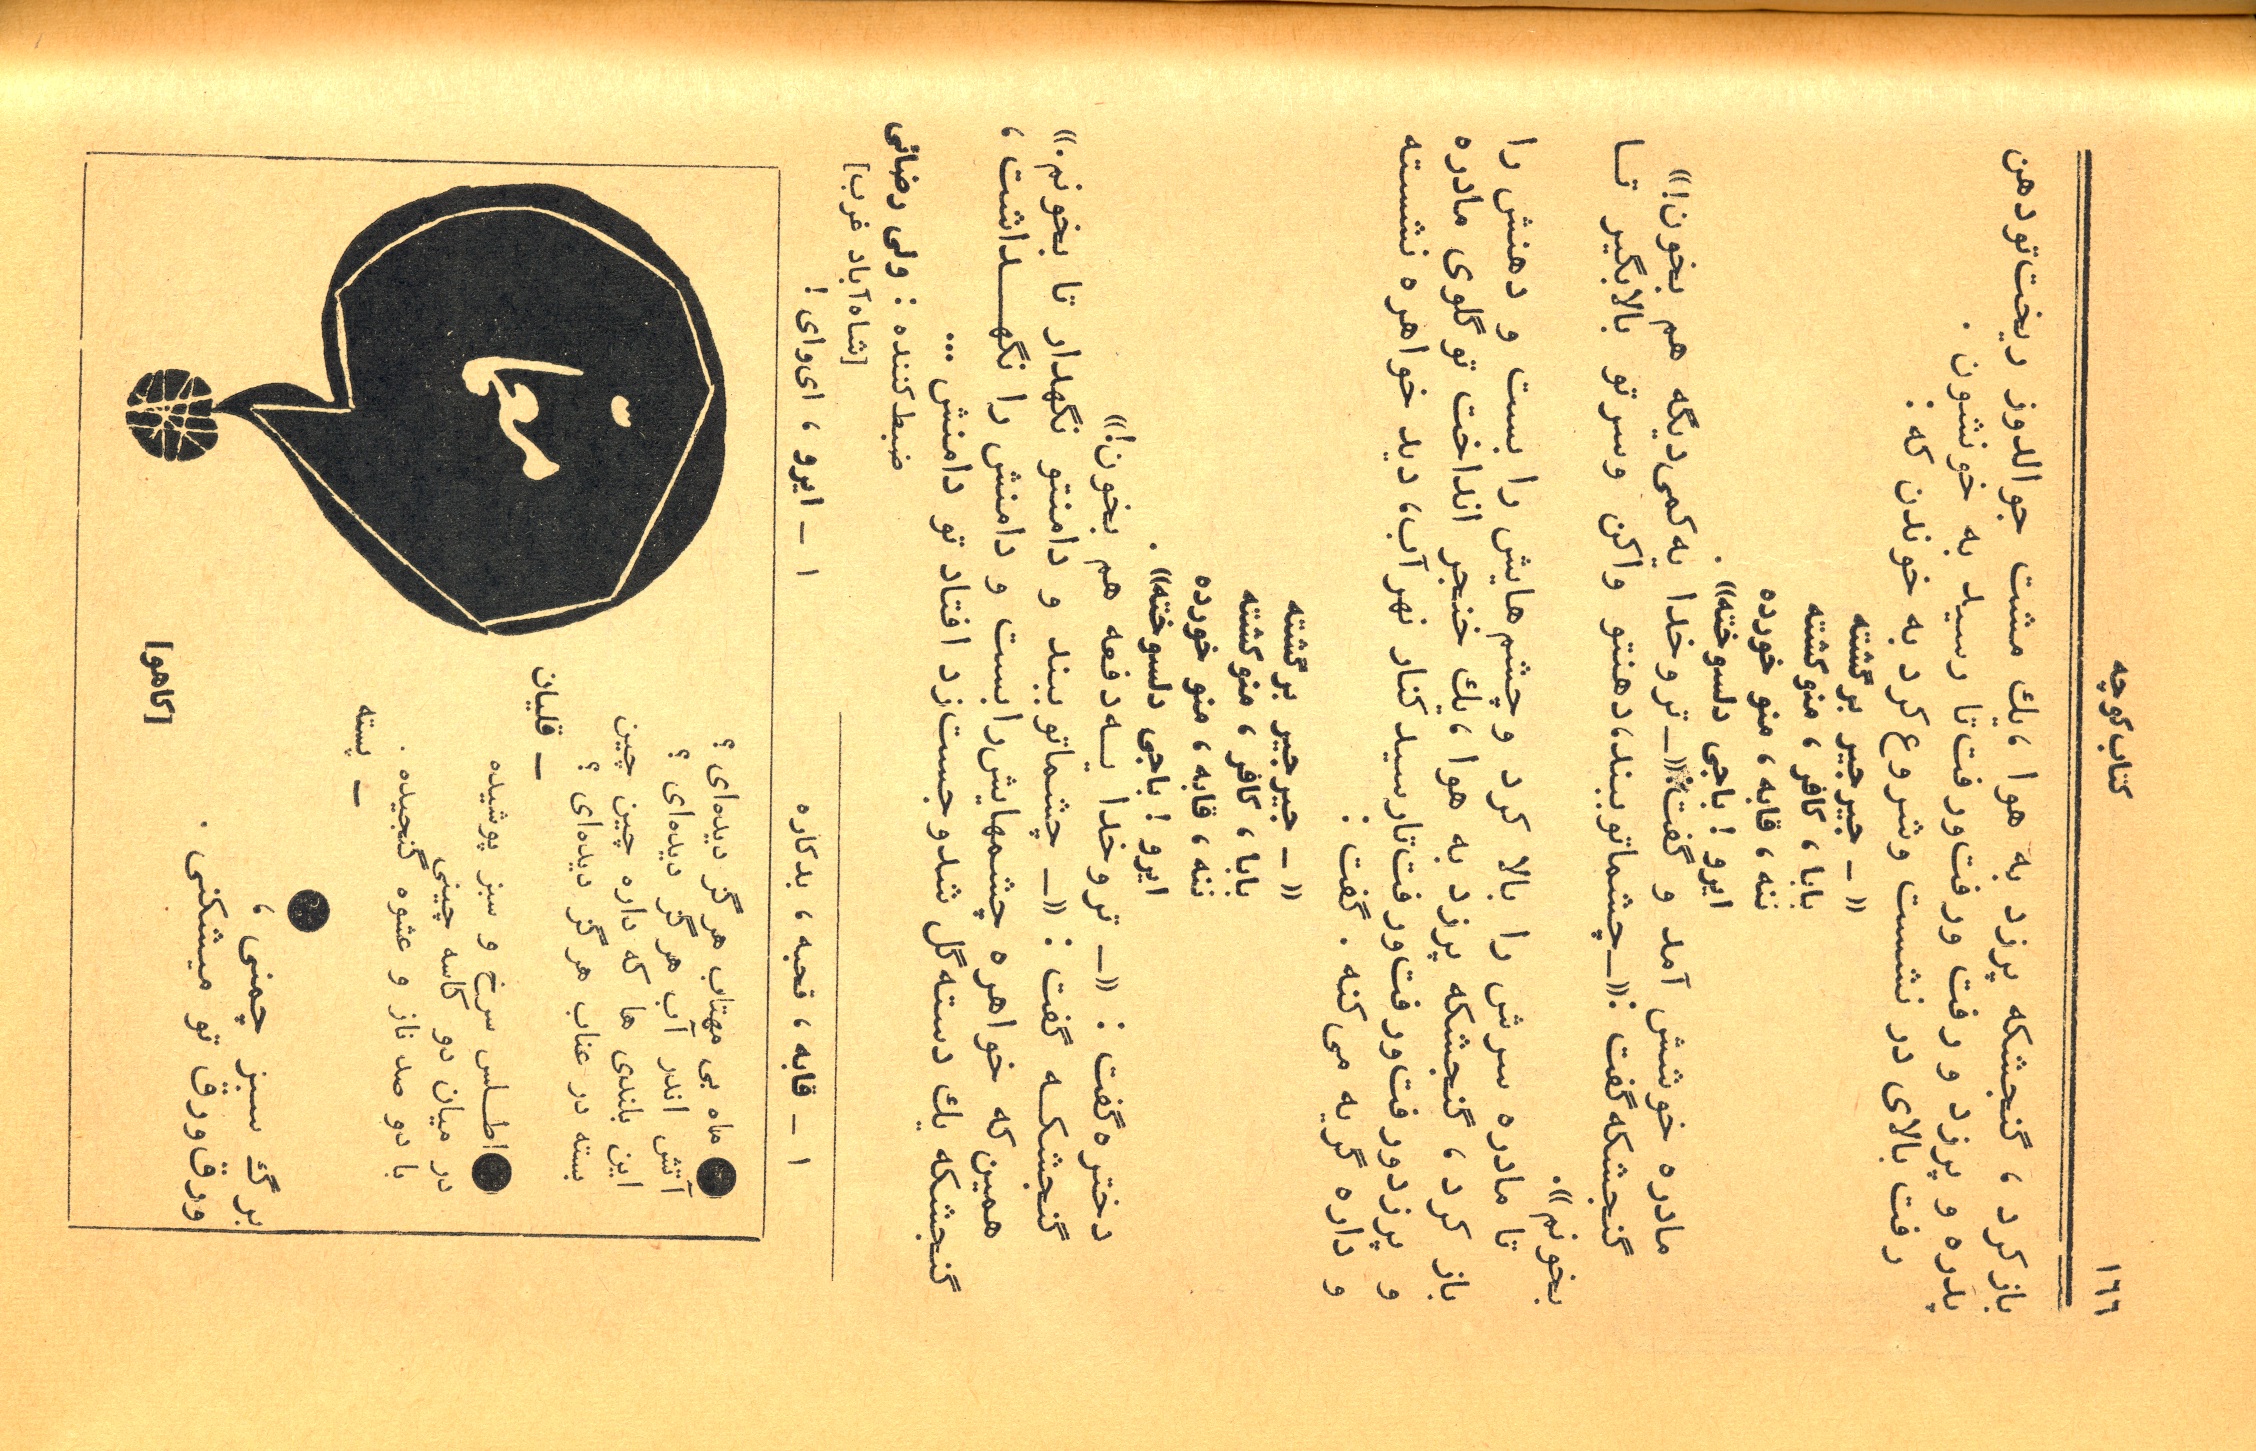 ۱۶۶
کتاب کوچه
باز کرد، گنجشکه پرزد به هوا، یك مشت جوالدوز ریخت تو دهن
پدره و پرزد و رفت ورفت ورفت تا رسید به خونشون.
رفت بالای در نشست و شروع کرد به خوندن که:
«ـ جیرجیر برگشته
بابا، کافر، منو کشته
ننه، قابه، منو خورده
ایرو! باجی دلسوخته».
مادره خوشش آمد و گفت: «ـ تروخدا یه کمی دیگه هم بخون!»
گنجشکه گفت: «ـ چشماتو ببند، دهنتو واکن وسرتو بالابگیر تـا
بخونم».
تا مادره سرش را بالا کرد و چشم‌هایش را بست و دهنش را
باز کرد، گنجشکه پرزد به هوا، یك خنجر انداخت تو گلوی مادره
و پرزدورفت ورفت ورفت تا رسید کنار نهر آب، دید خواهره نشسته
و داره گریه می‌کنه. گفت:
«ـ جیرجیر برگشته
بابا، کافر، منو کشته
ننه، قابه، منو خورده
ایرو! باجی دلسوخته».
دختره گفت: «ـ تروخدا یه‌دفعه هم بخون!»
گنجشکـه گفت: «ـ چشماتو ببند و دامنتو نگهدار تا بخونم.»
همین که خواهره چشمهایش رابست و دامنش را نگهـداشت،
گنجشکه یك دسته گل شدو جست زد افتاد تو دامنش ...
ضبط کننده: ولی رضائی
[شاه‌آباد غرب]
۱ ـ قابه، قحبه، بدکاره
۱ ـ ایرو، ای‌وای!
معمّا
ماه بی مهتاب هرگز دیده‌ای؟
آتش اندر آب هرگز دیده‌ای؟
این بلندی ها که داره چین چین
بسته در عناب هرگز دیده‌ای؟
ـ قلیان
اطـلس سرخ و سبز پوشیده
در میان دو کاسه چینی
با دو صد ناز و عشوه گنجیده.
ـ پسته
برگ سبز چمنی،
ورق ورق تو میشکنی.
[کاهو]